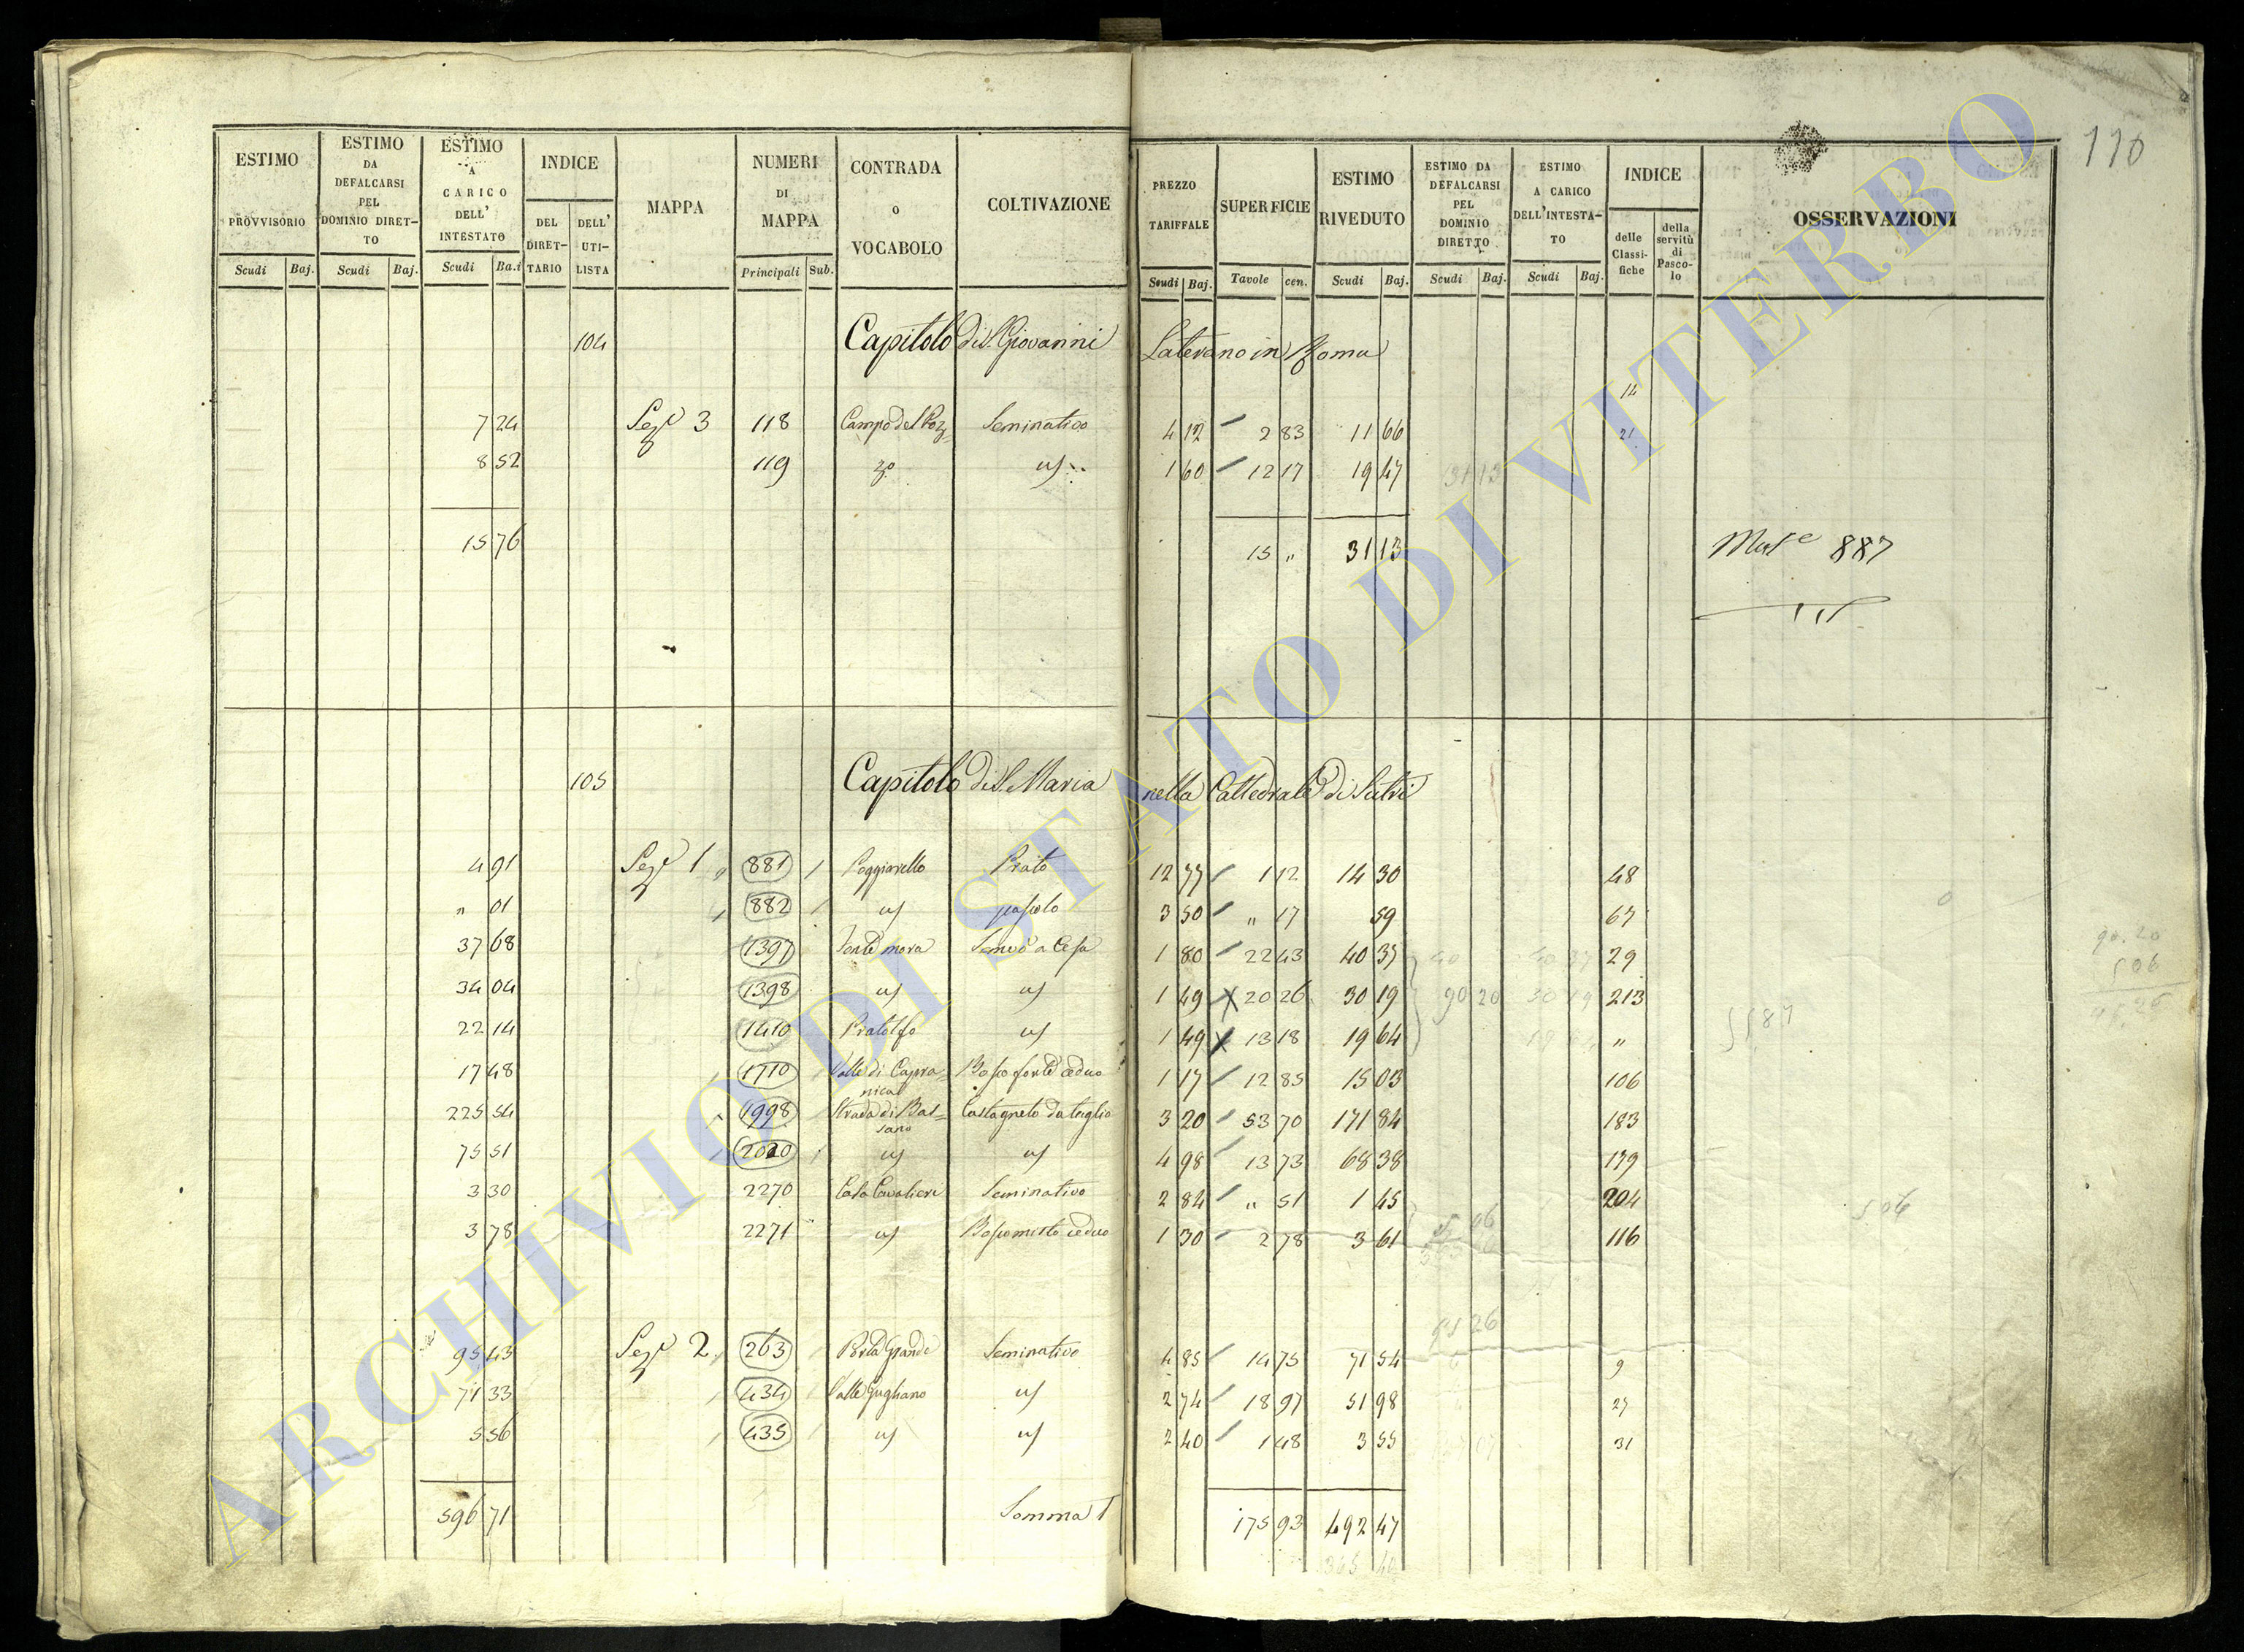 110
ESTIMO PROVVISORIO Scudi Baj.
ESTIMO DA DEFALCARSI PEL DOMINIO DIRET-TO Scudi Baj.
ESTIMO A CARICO DELL' INTESTATO Scudi Ba.i
INDICE DEL DIRET-TARIO DELL' UTI-LISTA
MAPPA
NUMERI DI MAPPA Principali Sub.
CONTRADA O VOCABOLO
COLTIVAZIONE
PREZZO TARIFFALE Scudi Baj.
SUPERFICIE Tavole cen.
ESTIMO RIVEDUTO Scudi Baj.
ESTIMO DA DEFALCARSI PEL DOMINIO DIRETTO Scudi Baj.
ESTIMO A CARICO DELL'INTESTA-TO Scudi Baj.
INDICE delle Classi-fiche della servitù di Pasco-lo
OSSERVAZIONI
104 Capitolo di S. Giovanni Laterano in Roma
14
7 24 Seze 3 118 Campo del Poz- Seminativo 4 12 2 83 11 66 21
8 52 119 zo ud 1 60 12 17 19 47 31 13
15 76 15 " 31 13 887
105 Capitolo di S. Maria nella Cattedrale di Sutri
4 91 Seze 1 881 Poggiarello Prato 12 77 1 12 14 30 48
" 01 882 ud pascolo 3 50 " 17 59 67
37 68 1397 1 80 22 43 40 37 29
34 04 1398 ud ud 1 49 20 26 30 19 90 20 30 19 213
22 14 1410 ud 1 49 13 18 19 64 "
17 48 1710 Valle di Capra-nica Bosco forte ceduo 1 17 12 85 15 03 106
225 54 1998 Strada di Bas-sano Castagneto da taglio 3 20 53 70 171 84 183
75 51 2020 ud ud 4 98 13 73 68 38 179
3 30 2270 Cavalieri Seminativo 2 84 " 51 1 45 204
3 78 2271 ud Bosco misto ceduo 1 30 2 78 3 61 116
95 43 Seze 2 263 Porta Grande Seminativo 4 85 14 75 71 54 9
71 33 434 Valle Gugliano ud 2 74 18 97 51 98 27
5 56 435 ud ud 2 40 1 48 3 55 31
596 71 Somma 175 93 492 47
ARCHIVIO DI STATO DI VITERBO